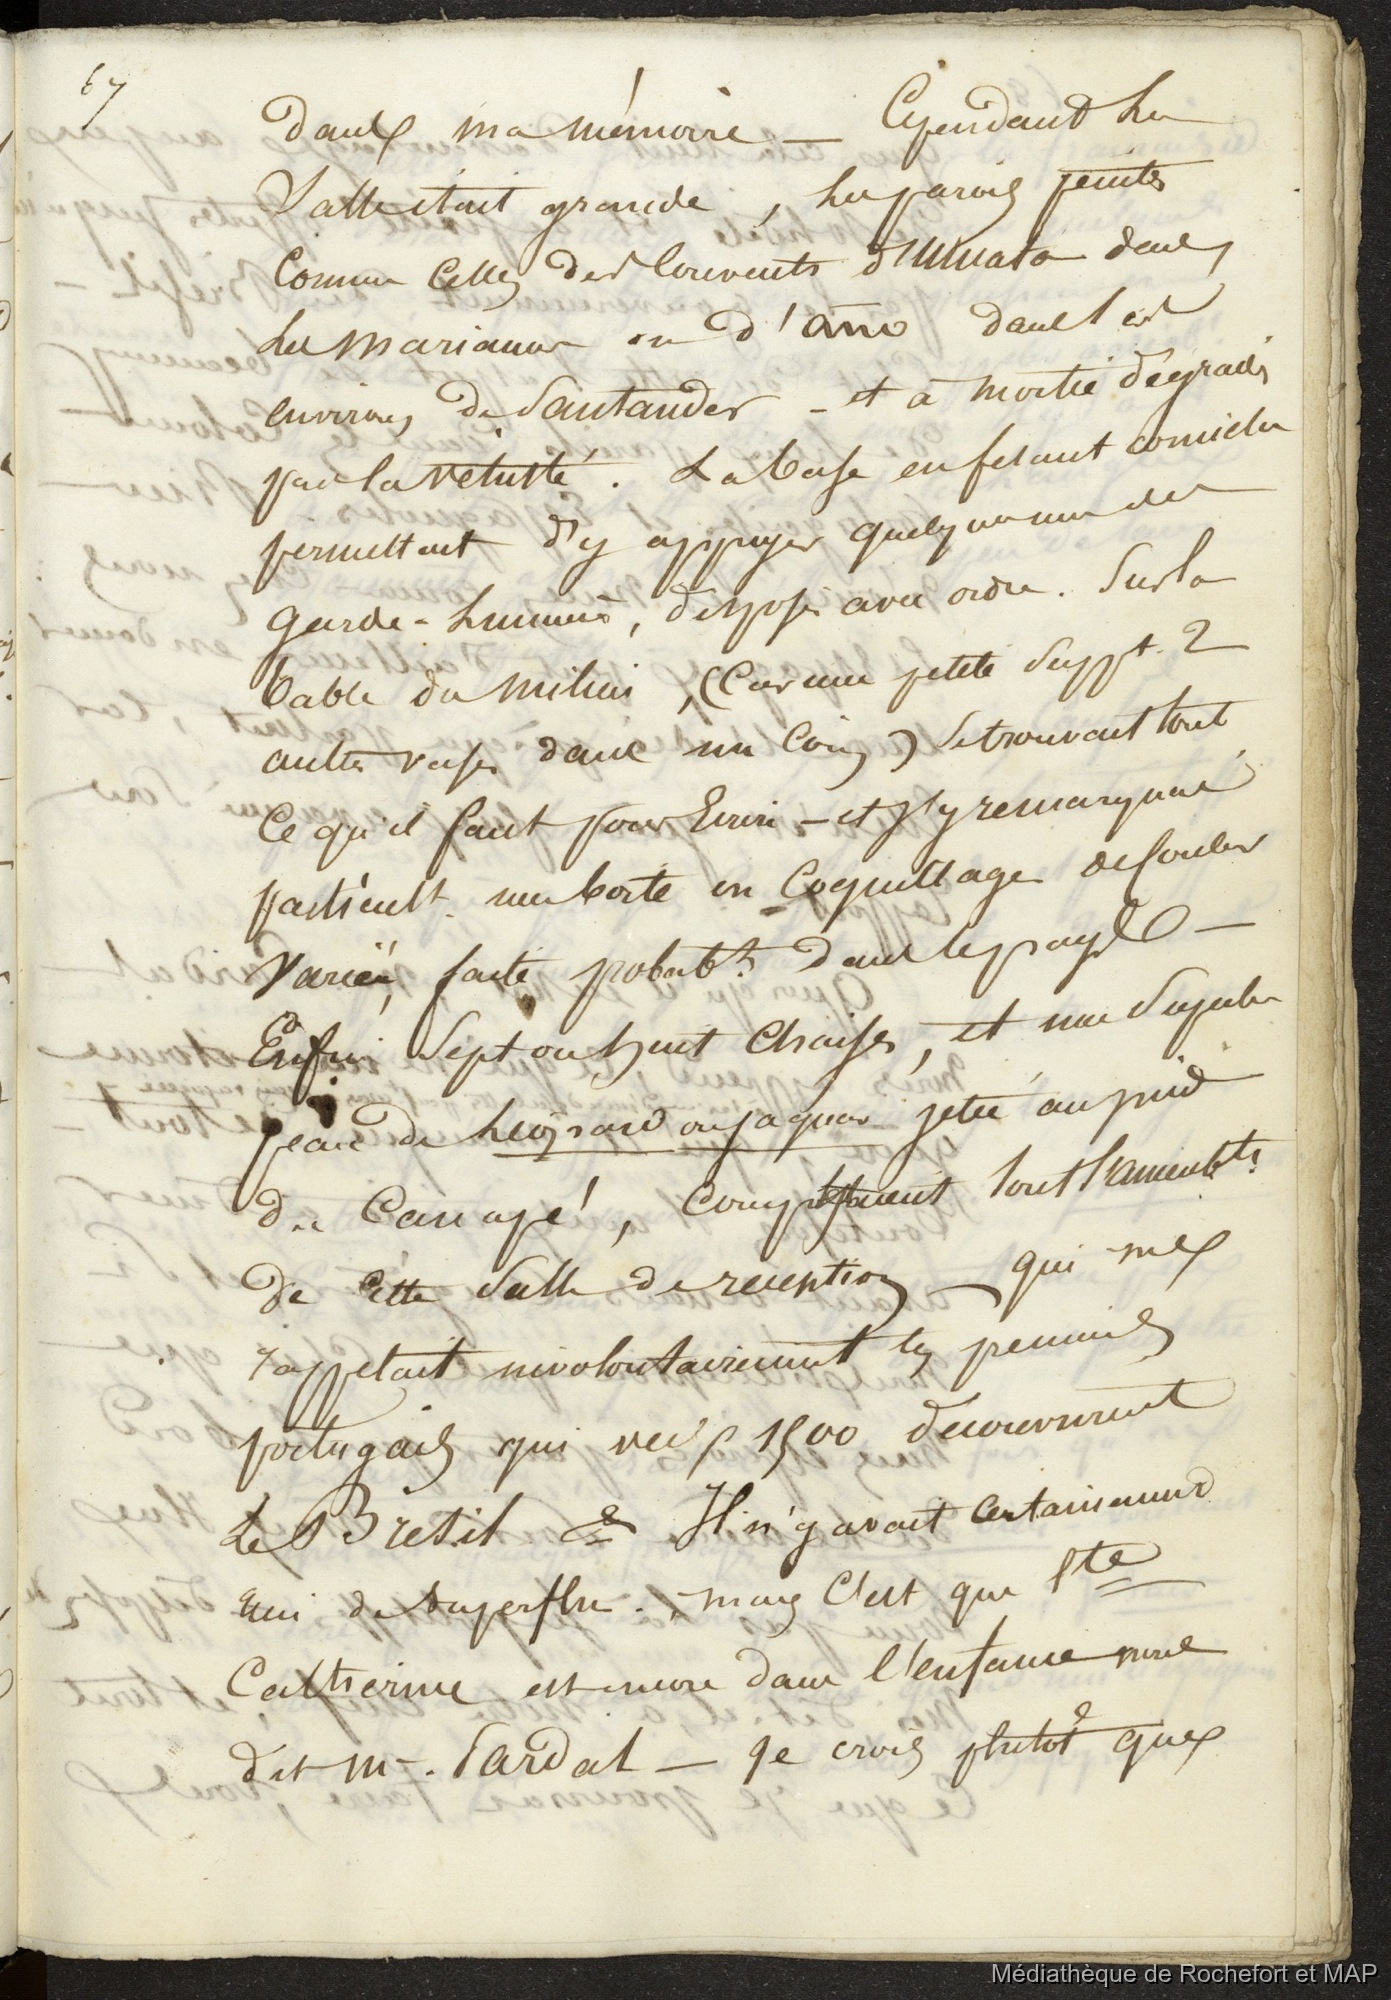 67
dans ma mémoire — Cependant la
Salle était grande, les parois peintes
comme celles des Couvents d'Umata dans
les Mariannes ou d'Año dans les
environs de Santander - et à moitié dégradés
par la vétusté. La base en fesant corniche
permettait d'y appuyer quelques uns des
garde-lumière, disposés avec ordre. Sur la
table du milieu, (Car une petite suppt. 2
autres vases dans un Coin) se trouvait tout
ce qu'il faut pour Ecrire - et j'y remarquai
particult. une boite en Coquillages de couleur
variées, faite probabt. dans le pays —
Enfin Sept ou huit Chaises, et une Superbe
peau de Léopard ou jaguar jetée au pied
du Canapé, complétaient tout l'ameublt.
de cette Salle de reception — qui me
rappelait involontairement les premiers
portugais qui vers 1500 découvrirent
Le Brésil & Il n'y avait certainement
rien de superflu. - mais C'est que Ste
Catherine est encore dans l'enfance nous
dit Mr. Sardat — je crois plutôt que
Médiathèque de Rochefort et MAP